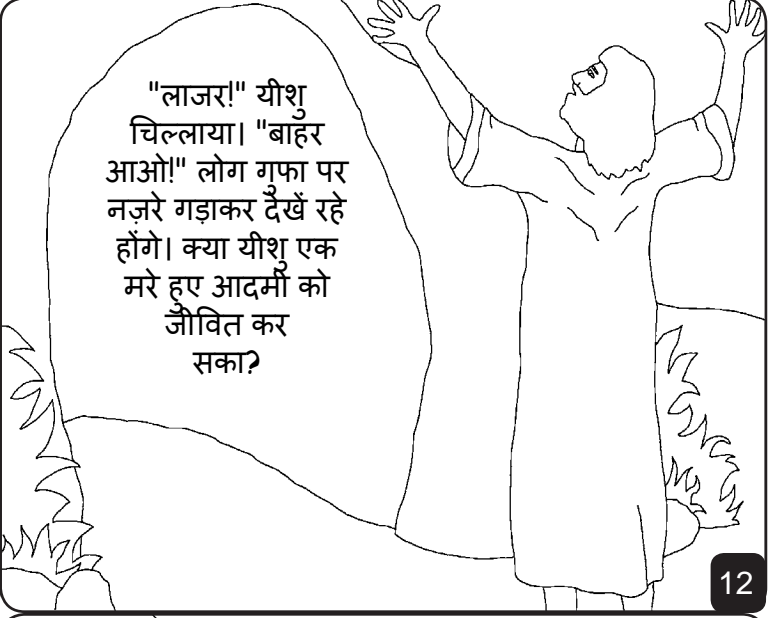 "लाजर!" यीशु
चिल्लाया। "बाहर
आओ!" लोग गुफा पर
नज़रे गड़ाकर देखें रहे
होंगे। क्या यीशु एक
मरे हुए आदमी को
जीवित कर
सका?
12